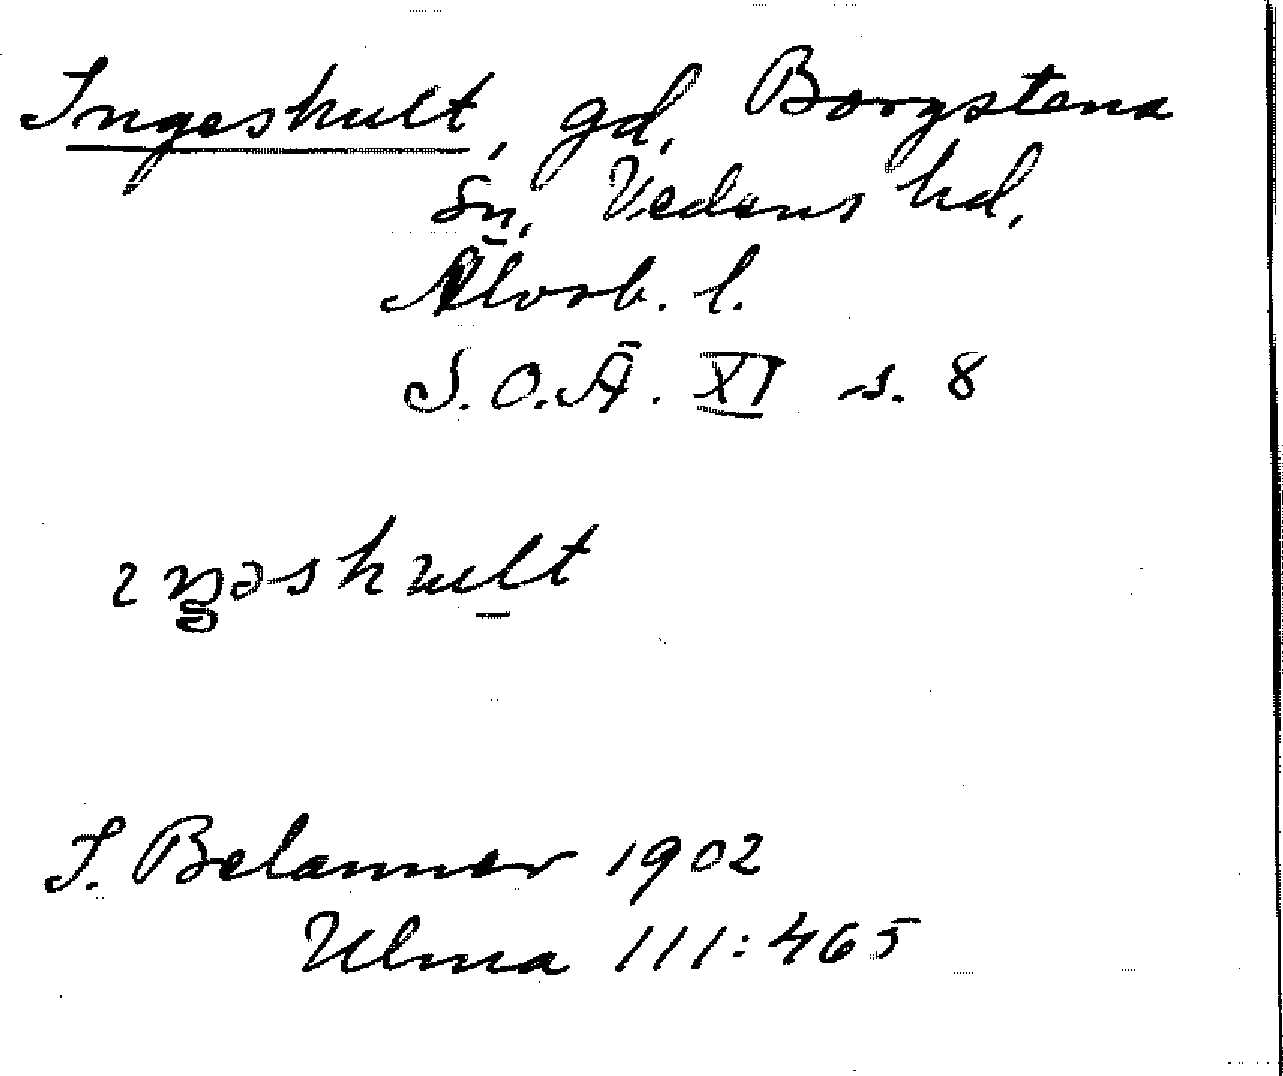 Ingeshult, gd, Borgstena
sn, Vedens hd,
Älvsb. l.
S.O.Ä. XI s. 8
ıŋəshult
S. Belanner 1902
Ulma 111:465